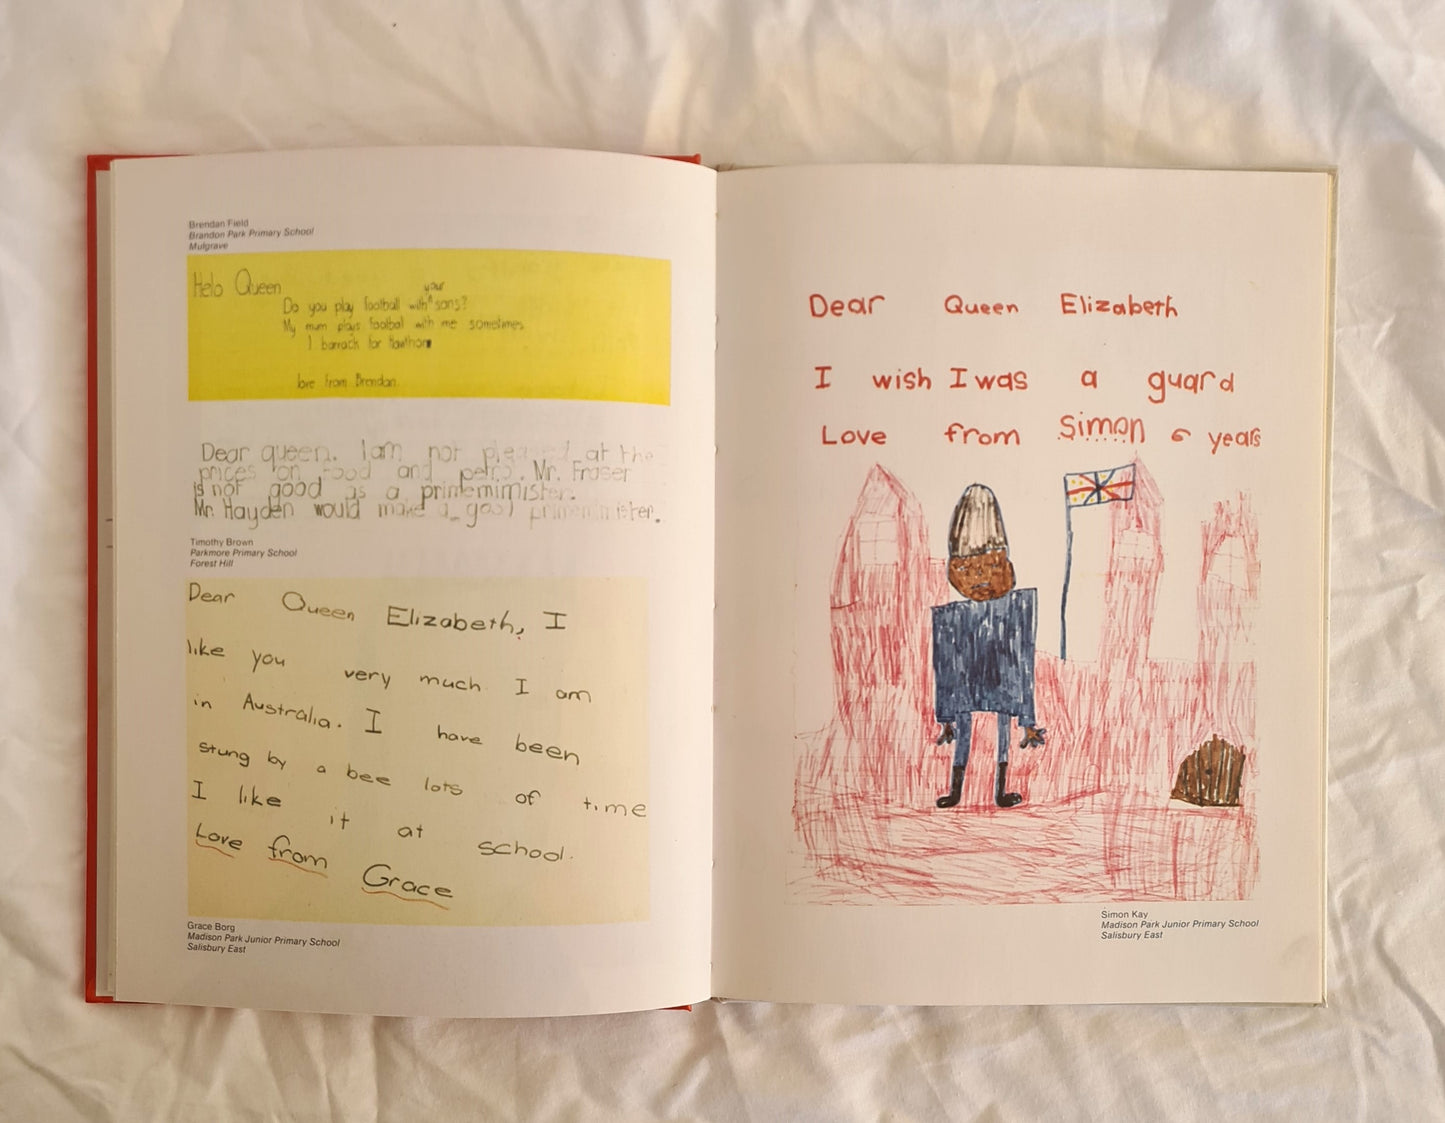 Brendan Field
Brandon Park Primary School
Mulgrave
Helo Queen
your
Do you play football with ^ sons?
My mum plays football with me sometimes
I barrack for Hawthorn
love from Brendan
Dear queen. I am not pleased at the
prices on food and petrol. Mr. Fraser
is not good as a primeminister.
Mr. Hayden would make a good primeminister.
Timothy Brown
Parkmore Primary School
Forest Hill
Dear Queen Elizabeth, I
like you very much I am
in Australia. I have been
stung by a bee lots of time
I like it at school.
Love from Grace
Grace Borg
Madison Park Junior Primary School
Salisbury East
Dear Queen Elizabeth
I wish I was a guard
Love from Simon 6 years
Simon Kay
Madison Park Junior Primary School
Salisbury East